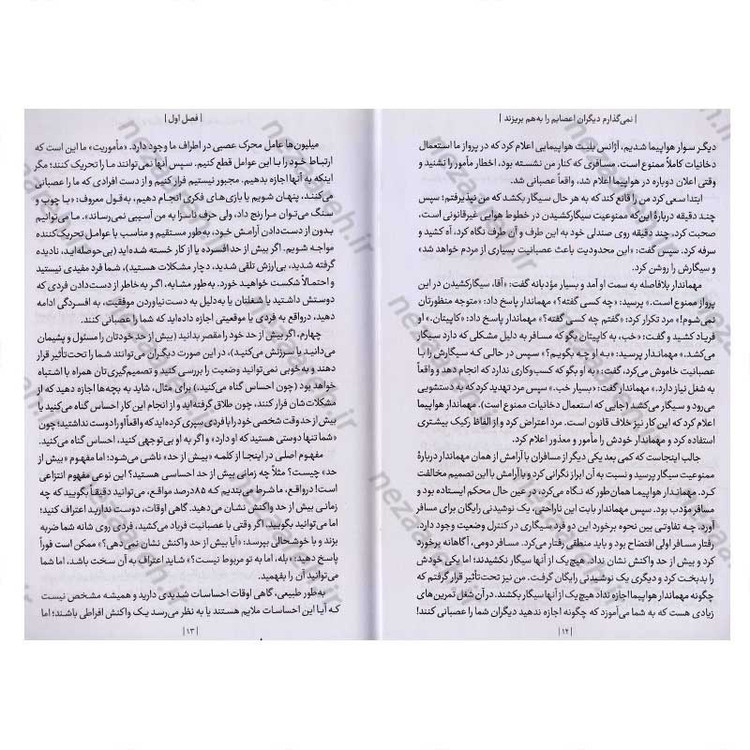 | نمی‌گذارم دیگران اعصابم را به‌هم بریزند |
دیگر سوار هواپیما شدیم، آژانس بلیت هواپیمایی اعلام کرد که در پرواز ما استعمال
دخانیات کاملاً ممنوع است. مسافری که کنار من نشسته بود، اخطار مأمور را نشنید و
وقتی اعلان دوباره در هواپیما اعلام شد، واقعاً عصبانی شد.
ابتدا سعی کرد من را قانع کند که به هر حال سیگار بکشد که من نپذیرفتم؛ سپس
چند دقیقه دربارهٔ این‌که ممنوعیت سیگارکشیدن در خطوط هوایی غیرقانونی است،
صحبت کرد، چند دقیقه روی صندلی خود به این طرف و آن طرف نگاه کرد، آه کشید و
سرفه کرد. سپس گفت: «این محدودیت باعث عصبانیت بسیاری از مردم خواهد شد»
و سیگارش را روشن کرد.
مهماندار بلافاصله به سمت او آمد و بسیار مؤدبانه گفت: «آقا، سیگارکشیدن در این
پرواز ممنوع است.» پرسید: «چه کسی گفته؟» مهماندار پاسخ داد: «متوجه منظورتان
نمی‌شوم!» مرد تکرار کرد: «گفتم چه کسی گفته؟» مهماندار پاسخ داد: «کاپیتان.» او
فریاد کشید و گفت: «خب، به کاپیتان بگو که مسافر به دلیل مشکلی که دارد سیگار
می‌کشد.» مهماندار پرسید: «به او چه بگویم؟» سپس در حالی که سیگارش را با
عصبانیت خاموش می‌کرد، گفت: «به او بگو که کسب‌وکاری ندارد که انجام دهد و واقعاً
به شغل نیاز دارد.» مهماندار گفت: «بسیار خب.» سپس مرد تهدید کرد که به دستشویی
می‌رود و سیگار می‌کشد (جایی که استعمال دخانیات ممنوع است). مهماندار هواپیما
اعلام کرد که این کار نیز خلاف قانون است. مرد اعتراض کرد و از الفاظ رکیک بیشتری
استفاده کرد و مهماندار خودش را مأمور و معذور اعلام کرد.
جالب اینجاست که کمی بعد یکی دیگر از مسافران با آرامش از همان مهماندار دربارهٔ
ممنوعیت سیگار پرسید و نسبت به آن ابراز نگرانی کرد و با آرامش با این تصمیم مخالفت
کرد. مهماندار هواپیما همان‌طور که نگاه می‌کرد، در عین حال محکم ایستاده بود و
مسافر مؤدب بود. سپس مهماندار بابت این ناراحتی، یک نوشیدنی رایگان برای مسافر
آورد. چه تفاوتی بین نحوه برخورد این دو فرد سیگاری در کنترل وضعیت وجود دارد.
رفتار مسافر اولی افتضاح بود و باید منطقی رفتار می‌کرد. مسافر دومی، آگاهانه برخورد
کرد و بیش از حد واکنش نشان نداد. هیچ‌یک از آنها سیگار نکشیدند؛ اما یکی خودش
را بدبخت کرد و دیگری یک نوشیدنی رایگان گرفت. من نیز تحت‌تأثیر قرار گرفتم که
چگونه مهماندار هواپیما اجازه نداد هیچ‌یک از آنها سیگار بکشند. در آن شغل تمرین‌های
زیادی هست که به شما می‌آموزد که چگونه اجازه ندهید دیگران شما را عصبانی کنند!
| ۱۲ |
| فصل اول |
میلیون‌ها عامل محرک عصبی در اطراف ما وجود دارد. «مأموریت» ما این است که
ارتباط خود را با این عوامل قطع کنیم. سپس آنها نمی‌توانند ما را تحریک کنند؛ مگر
اینکه به آنها اجازه بدهیم. مجبور نیستیم فرار کنیم و از دست افرادی که ما را عصبانی
می‌کنند، پنهان شویم یا بازی‌های فکری انجام دهیم، به‌قول معروف: «با چوب و
سنگ می‌توان مرا رنج داد، ولی حرف ناسزا به من آسیبی نمی‌رساند». ما می‌توانیم
بدون از دست‌دادن آرامش خود، به‌طور مستقیم و مناسب با عوامل تحریک‌کننده
مواجه شویم. اگر بیش از حد افسرده یا از کار خسته شده‌اید (بی‌حوصله‌اید، نادیده
گرفته شدید، بی‌ارزش تلقی شدید، دچار مشکلات هستید)، شما فرد مفیدی نیستید
و احتمالاً شکست خواهید خورد. به‌طور مشابه، اگر به خاطر از دست‌دادن فردی که
دوستش داشتید یا شغلتان یا به‌دلیل به دست نیاوردن موفقیت، به افسردگی ادامه
دهید، درواقع به فردی یا موقعیتی اجازه داده‌اید که شما را عصبانی کنند.
چهارم، اگر بیش از حد خود را مقصر بدانید (بیش از حد خودتان را مسئول و پشیمان
می‌دانید یا سرزنش می‌کنید)، در این صورت دیگران می‌توانند شما را تحت‌تأثیر قرار
دهند و به‌خوبی نمی‌توانید وضعیت را بررسی کنید و تصمیم‌گیری‌تان همراه با اشتباه
خواهد بود (چون احساس گناه می‌کنید.) برای مثال، شاید به بچه‌ها اجازه دهید که از
مشکلاتشان فرار کنند، چون طلاق گرفته‌اید و از انجام این کار احساس گناه می‌کنید یا
بیش از حد وقت شخصی خود را با فردی سپری کرده‌اید که واقعاً او را دوست ندارید؛ چون
«شما تنها دوستی هستید که او دارد» و اگر به او بی‌توجهی کنید، احساس گناه می‌کنید.
مفهوم اصلی در اینجا از کلمه «بیش از حد» ناشی می‌شود؛ اما مفهوم «بیش از
حد» چیست؟ مثلاً چه زمانی بیش از حد احساسی هستید؟ این نوعی مفهوم انتزاعی
است! درواقع، ما شرط می‌بندیم که ۸۵درصد مواقع، می‌توانید دقیقاً بگویید که چه
زمانی بیش از حد واکنش نشان می‌دهید. گاهی اوقات، دوست ندارید اعتراف کنید؛
اما می‌توانید بگویید. اگر وقتی با عصبانیت فریاد می‌کشید، فردی روی شانه شما ضربه
بزند و با خوشحالی بپرسد: «آیا بیش از حد واکنش نشان نمی‌دهی؟» ممکن است فوراً
پاسخ دهید: «بله، اما به تو مربوط نیست؟» شاید اعتراف به آن سخت باشد، اما شما
می‌توانید آن را بفهمید.
به‌طور طبیعی، گاهی اوقات احساسات شدیدی دارید و همیشه مشخص نیست
که آیا این احساسات ملایم هستند یا به نظر می‌رسد یک واکنش افراطی باشند؛ اما
| ۱۳ |